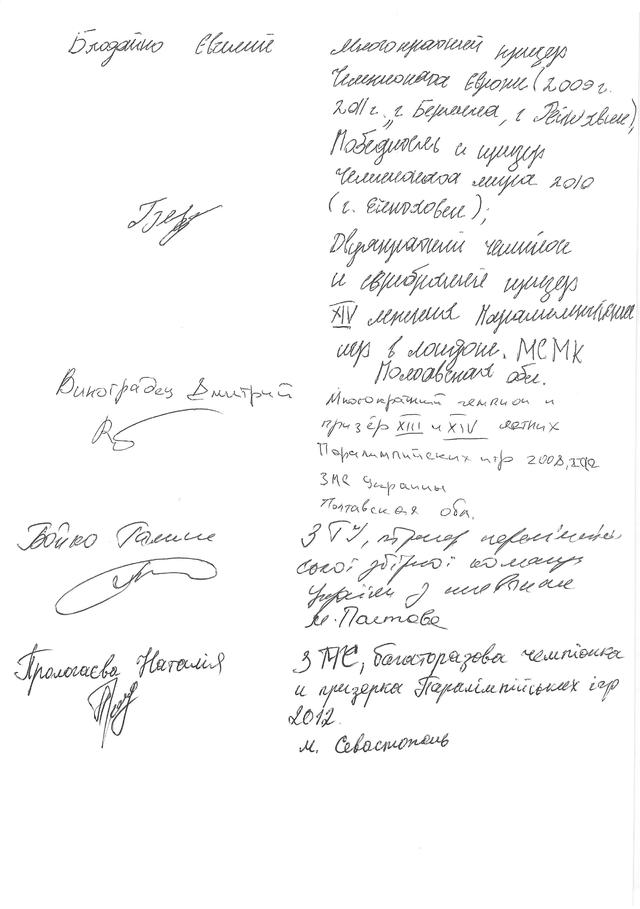 Богодайко Евгений
Многократный призер
Чемпионата Европы (2009 г.
2011 г. "г. Берлина, г. Рейкявик),
Победитель и призер
Чемпионата мира 2010
(г. Ейндховен);
Двукратный чемпион
и серебряный призер
XIV летних Паралимпийских
игр в Лондоне. МСМК
Полтавская обл.
Виноградец Дмитрий
Многократный чемпион и
призёр XIII и XIV летних
Паралимпийских игр 2008, 2012
ЗМС Украины
Полтавская обл.
Бойко Галина
ЗТУ, тренер паралімпій
ської збірної команди
України з плавання
м. Полтава
Прологаєва Наталія
ЗМС, багаторазова чемпіонка
и призерка Паралімпійських ігр
2012
м. Севастополь